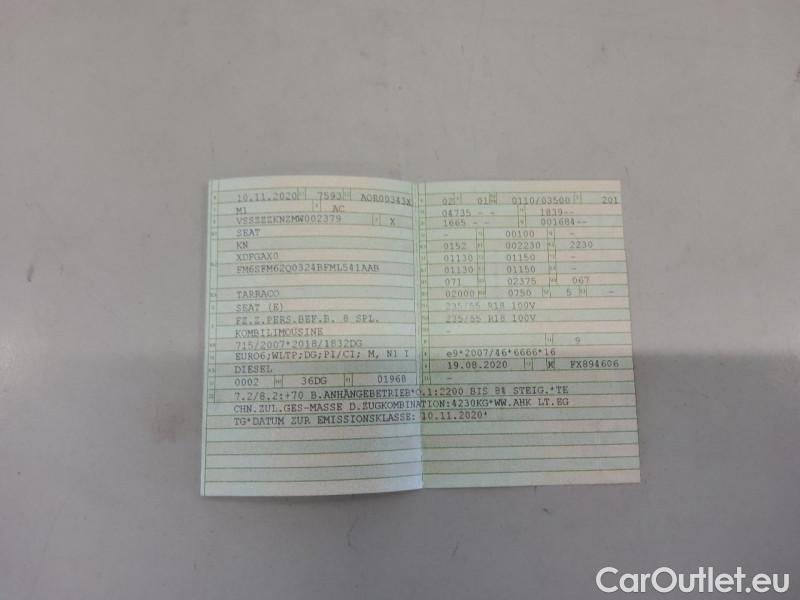 10.11.2020 7593 AOR00343X
M1 AC
VSSZZZKNZMW002379 X
SEAT
KN
XDFGAX0
FM6SFM62Q0324BFML541AAB
TARRACO
SEAT (E)
FZ.Z.PERS.BEF.B. 8 SPL.
KOMBILIMOUSINE
715/2007*2018/1832DG
EURO6;WLTP;DG;PI/CI; M, N1 I
DIESEL
0002 36DG 01968
02 01 0110/03500 201
04735 - - 1839--
1665 - - 001684--
- 00100 -
0152 002230 2230
01130 01150 -
01130 01150 -
071 02375 067
02000 0750 5 -
235/55 R18 100V
235/55 R18 100V
-
- 9
e9*2007/46*6666*16
19.08.2020 K FX894606
-
7.2/8.2:+70 B.ANHÄNGEBETRIEB*O.1:2200 BIS 8% STEIG.*TE
CHN.ZUL.GES-MASSE D.ZUGKOMBINATION:4230KG*WW.AHK LT.EG
TG*DATUM ZUR EMISSIONSKLASSE: 10.11.2020*
CarOutlet.eu